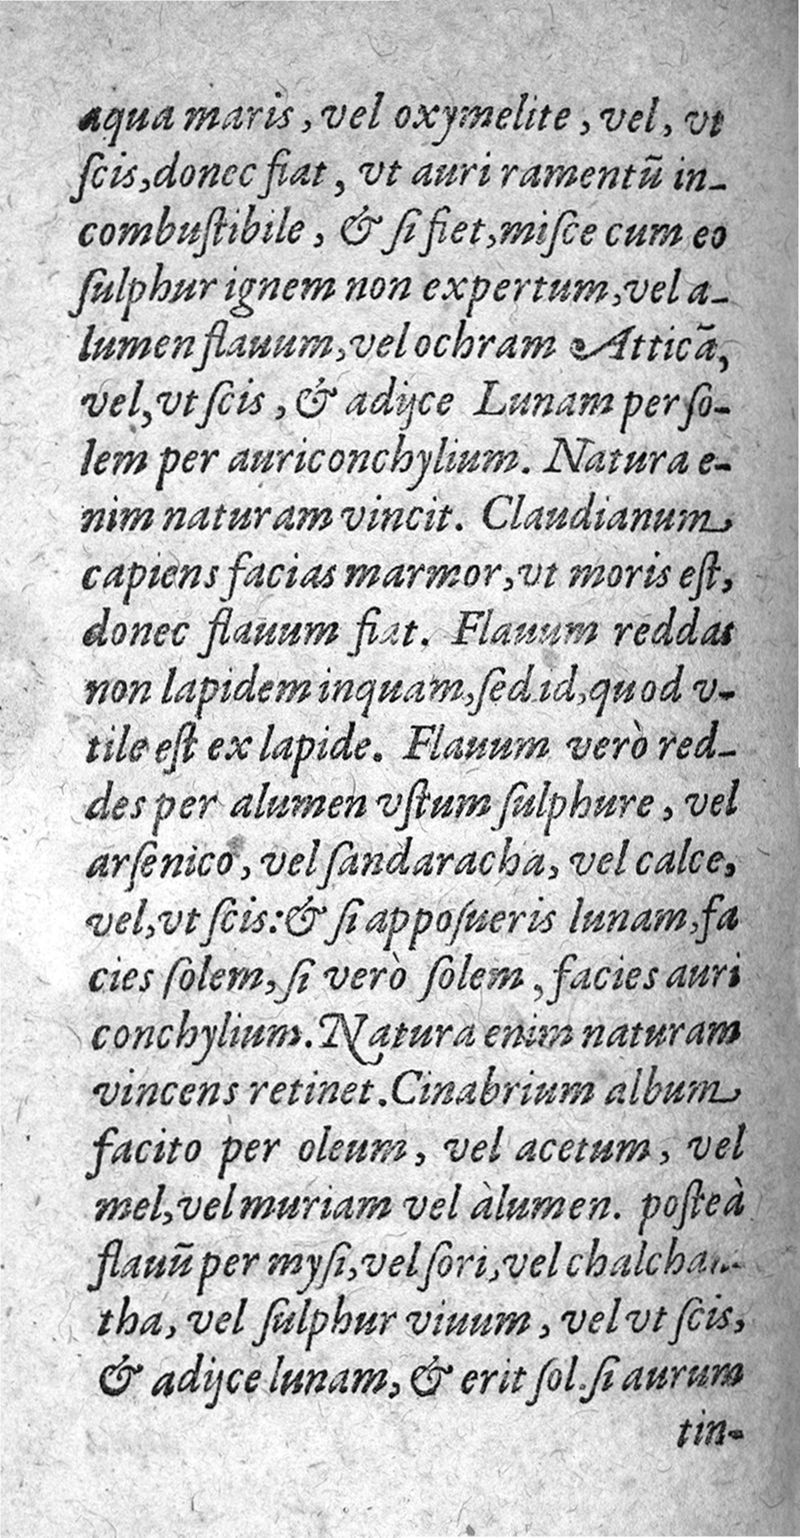 aqua maris, vel oxymelite, vel, vt
ſcis, donec fiat, vt auri ramentū in-
combuſtibile, & ſi fiet, miſce cum eo
ſulphur ignem non expertum, vel a-
lumen flauum, vel ochram Atticā,
vel, vt ſcis, & adijce Lunam per ſo-
lem per auriconchylium. Natura e-
nim naturam vincit. Claudianum
capiens facias marmor, vt moris eſt,
donec flauum fiat. Flauum reddas
non lapidem inquam, ſed id, quod v-
tile eſt ex lapide. Flauum verò red-
des per alumen vſtum ſulphure, vel
arſenico, vel ſandaracha, vel calce,
vel, vt ſcis: & ſi appoſueris lunam, fa
cies ſolem, ſi verò ſolem, facies auri
conchylium. Natura enim naturam
vincens retinet. Cinabrium album
facito per oleum, vel acetum, vel
mel, vel muriam vel àlumen. poſteà
flauū per myſi, vel ſori, vel chalchan-
tha, vel ſulphur viuum, vel vt ſcis,
& adijce lunam, & erit ſol. ſi aurum
tin-